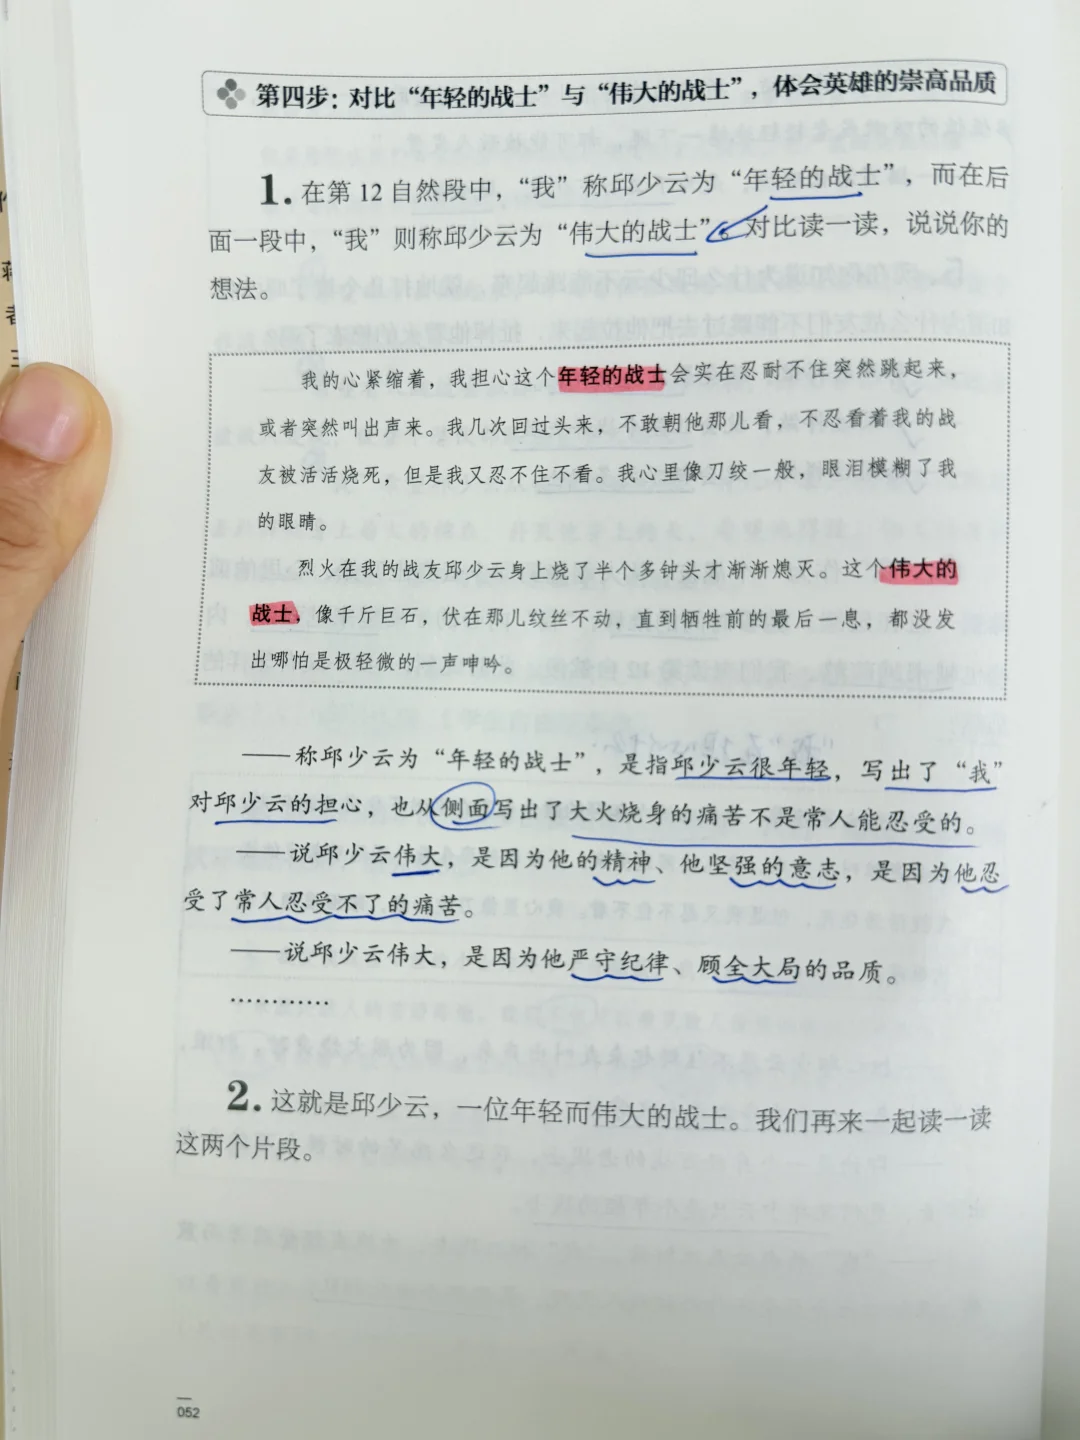 第四步：对比“年轻的战士”与“伟大的战士”，体会英雄的崇高品质
1.在第12自然段中，“我”称邱少云为“年轻的战士”，而在后
面一段中，“我”则称邱少云为“伟大的战士”。对比读一读，说说你的
想法。
我的心紧缩着，我担心这个年轻的战士会实在忍耐不住突然跳起来，
或者突然叫出声来。我几次回过头来，不敢朝他那儿看，不忍看着我的战
友被活活烧死，但是我又忍不住不看。我心里像刀绞一般，眼泪模糊了我
的眼睛。
烈火在我的战友邱少云身上烧了半个多钟头才渐渐熄灭。这个伟大的
战士，像千斤巨石，伏在那儿纹丝不动，直到牺牲前的最后一息，都没发
出哪怕是极轻微的一声呻吟。
——称邱少云为“年轻的战士”，是指邱少云很年轻，写出了“我”
对邱少云的担心，也从侧面写出了大火烧身的痛苦不是常人能忍受的。
——说邱少云伟大，是因为他的精神、他坚强的意志，是因为他忍
受了常人忍受不了的痛苦。
——说邱少云伟大，是因为他严守纪律、顾全大局的品质。
…………
2.这就是邱少云，一位年轻而伟大的战士。我们再来一起读一读
这两个片段。
052